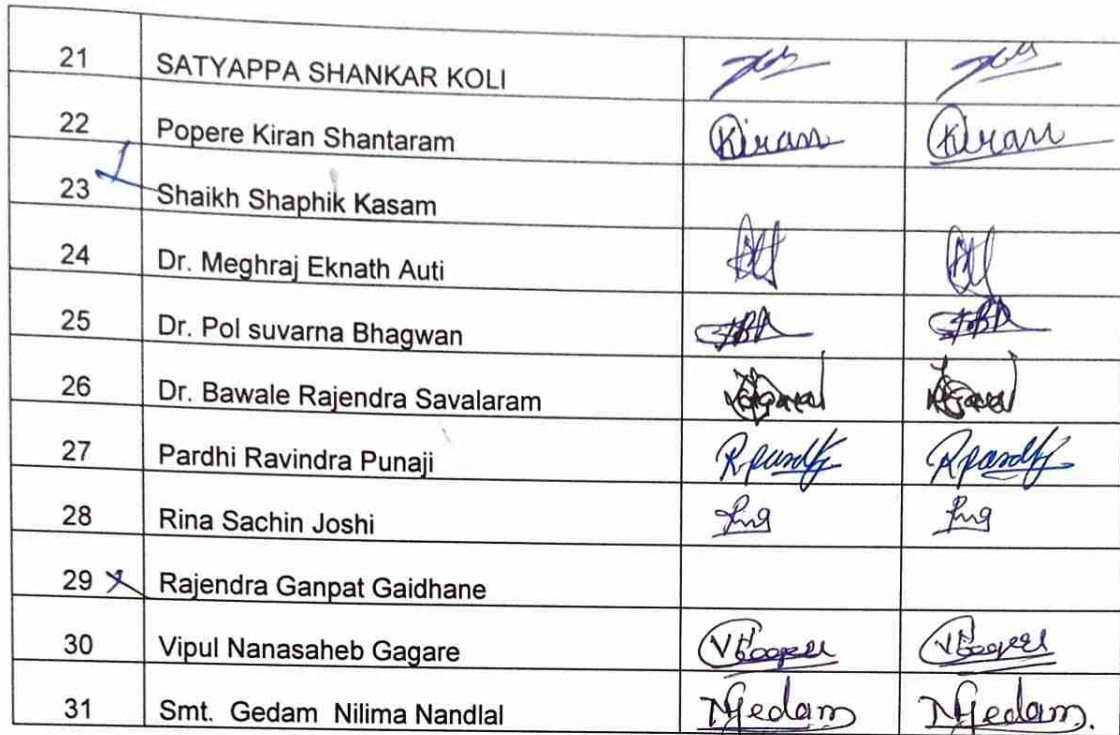 21 SATYAPPA SHANKAR KOLI
22 Popere Kiran Shantaram Kiran Kiran
23 Shaikh Shaphik Kasam
24 Dr. Meghraj Eknath Auti
25 Dr. Pol suvarna Bhagwan
26 Dr. Bawale Rajendra Savalaram
27 Pardhi Ravindra Punaji
28 Rina Sachin Joshi
29 Rajendra Ganpat Gaidhane
30 Vipul Nanasaheb Gagare
31 Smt. Gedam Nilima Nandlal NGedam NGedam.